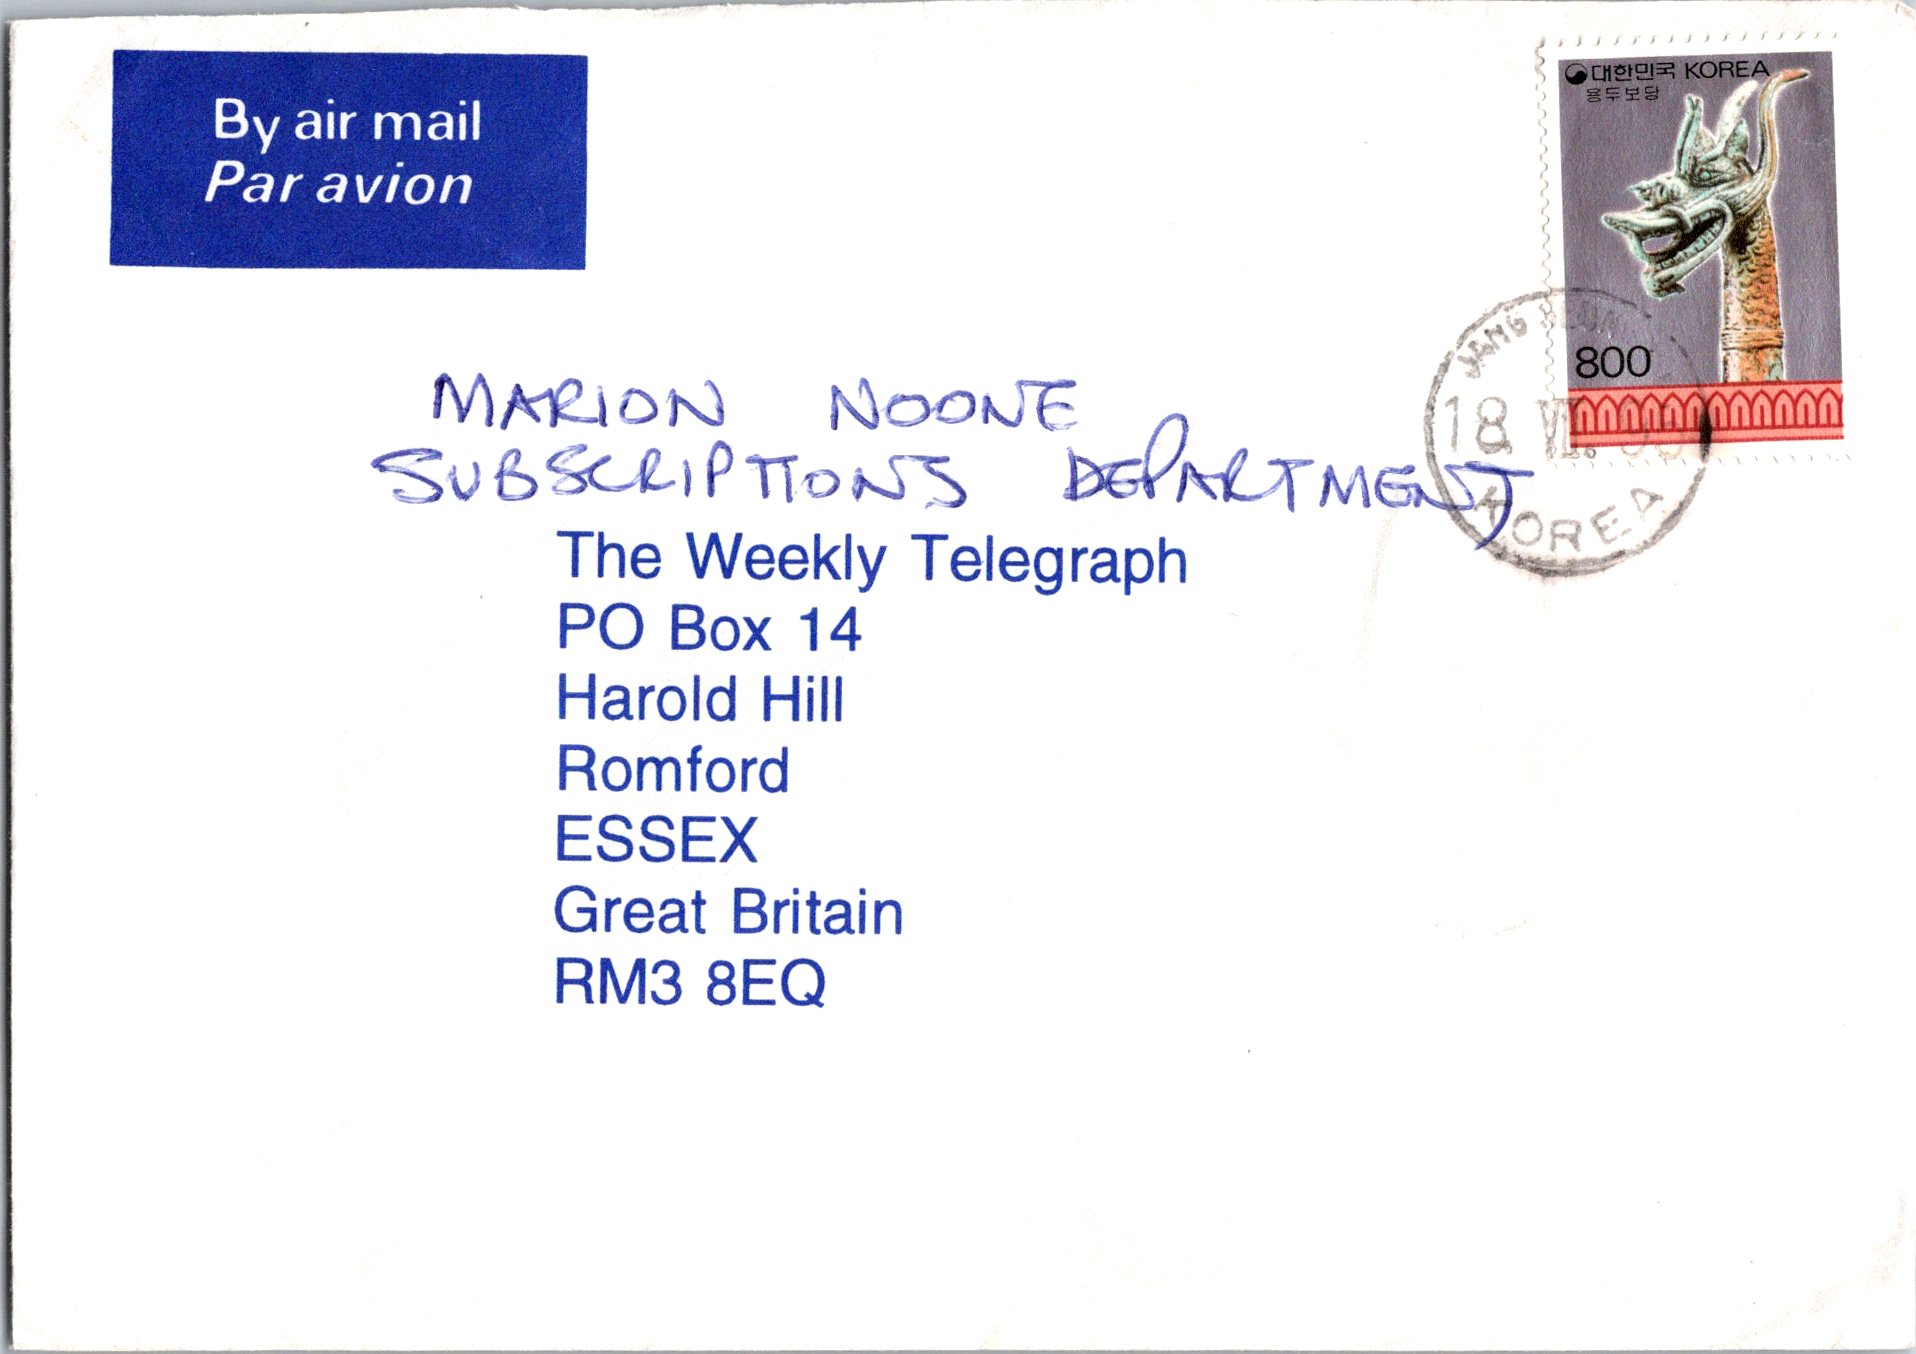 By air mail
Par avion
대한민국 KOREA
용두보당
800
18
KOREA
MARION NOONE
SUBSCRIPTIONS DEPARTMENT
The Weekly Telegraph
PO Box 14
Harold Hill
Romford
ESSEX
Great Britain
RM3 8EQ